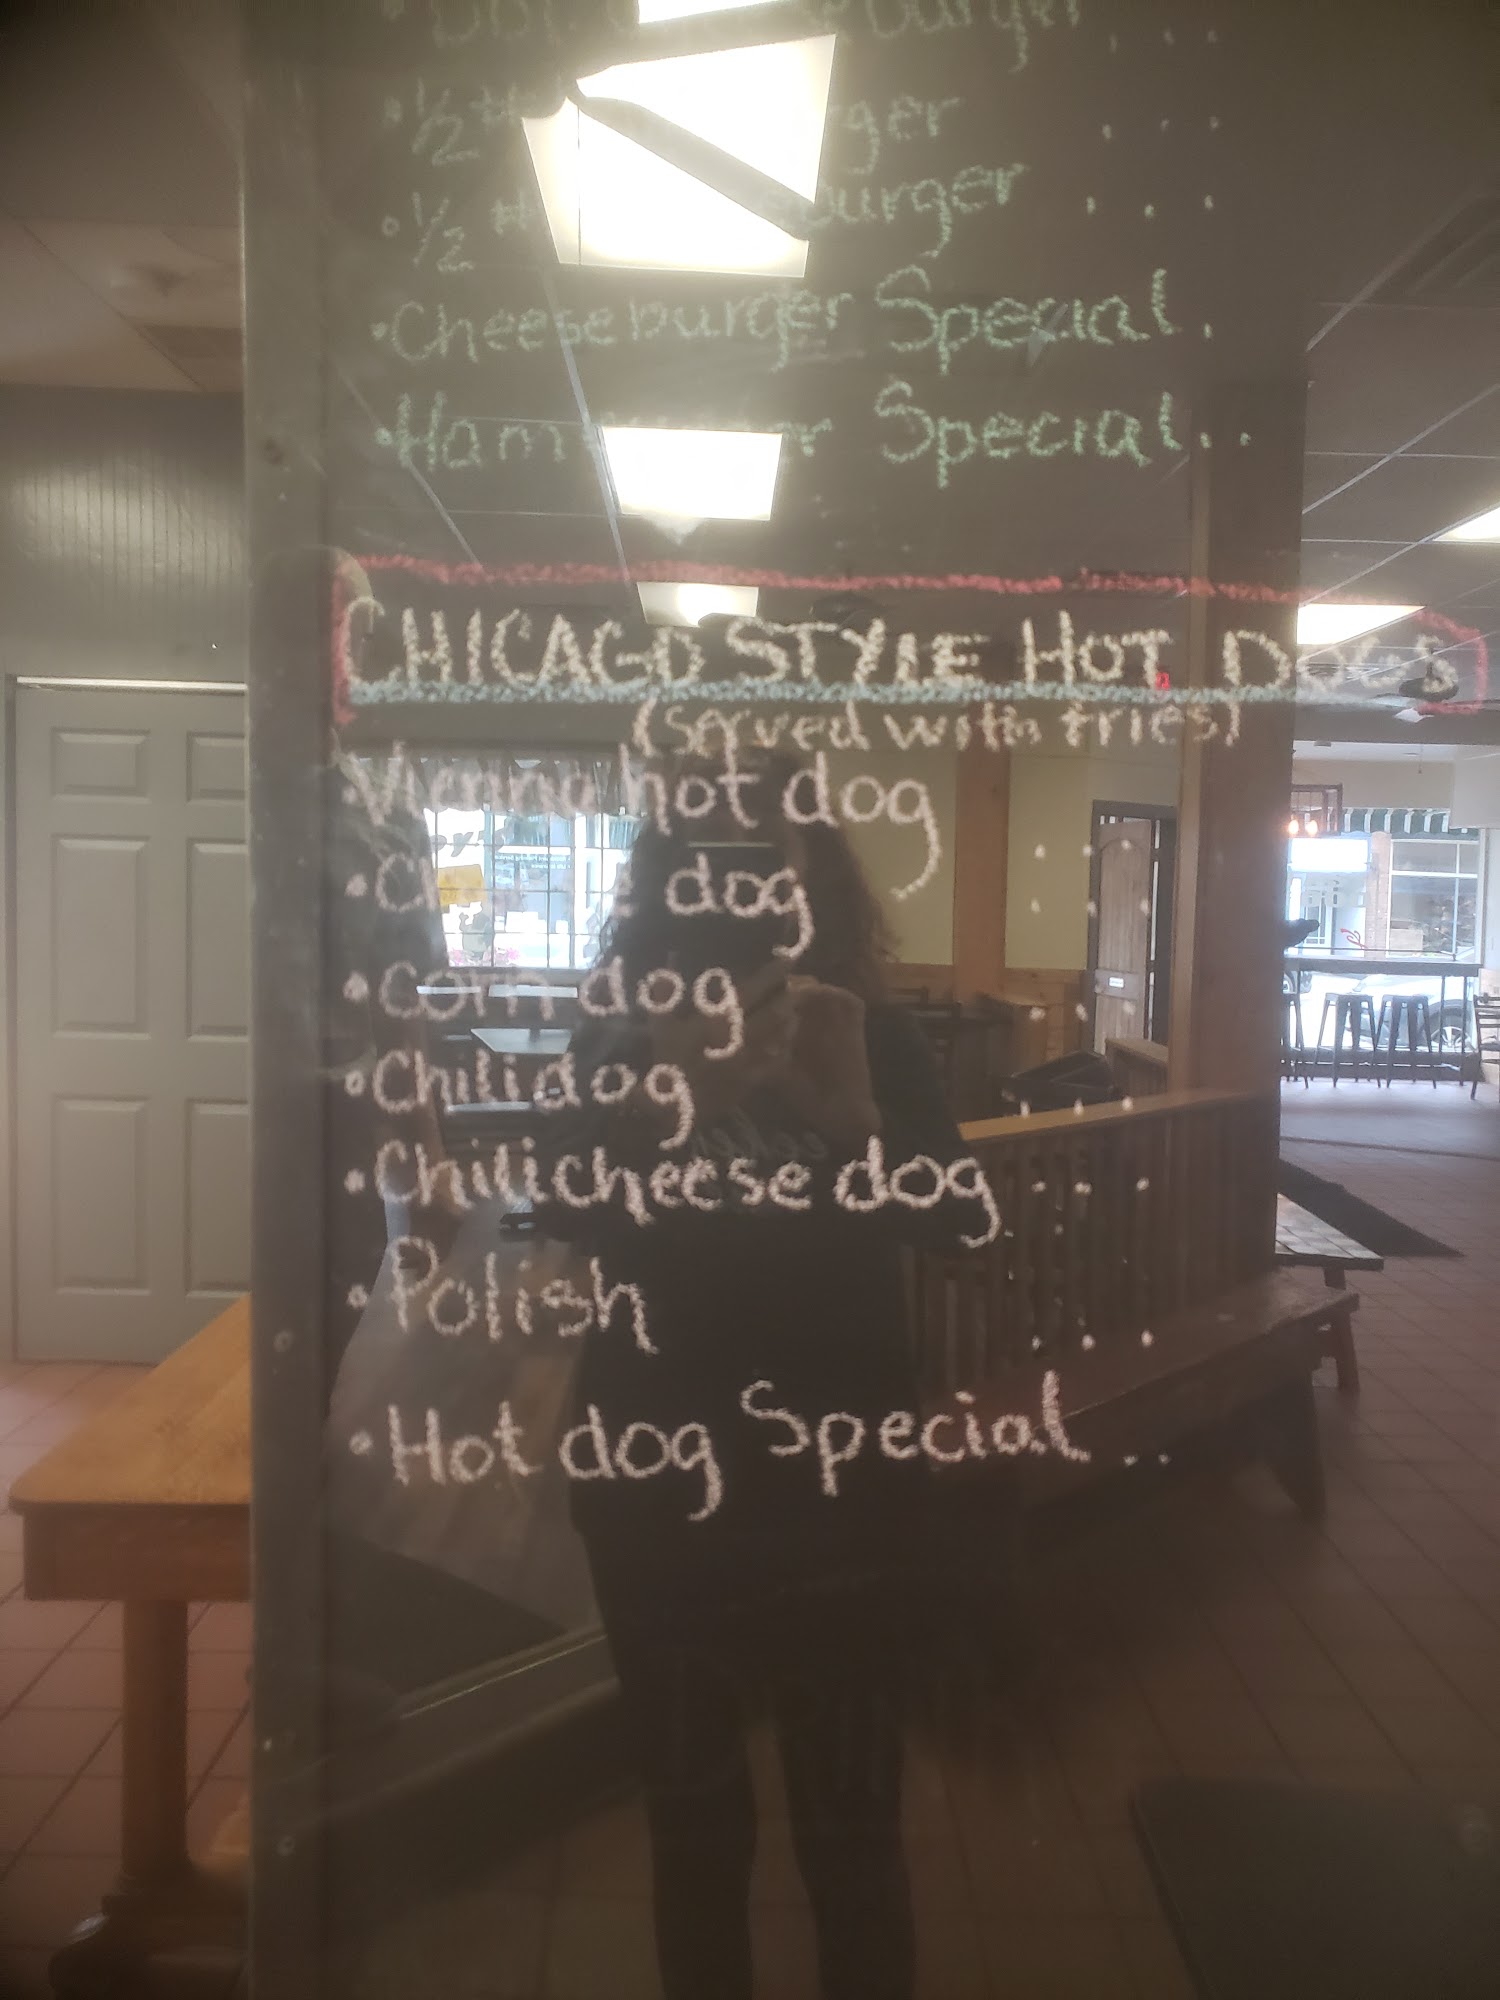 burger . . .
· ½ #
· ½ # burger . . .
· Cheeseburger Special . .
· Special . . .
CHICAGO STYLE HOT DOGS
(served with fries)
· Vienna hot dog . . .
· dog . . .
· corn dog . . .
· Chili dog . . .
· Chili cheese dog . . .
· Polish . . .
· Hot dog Special . . .